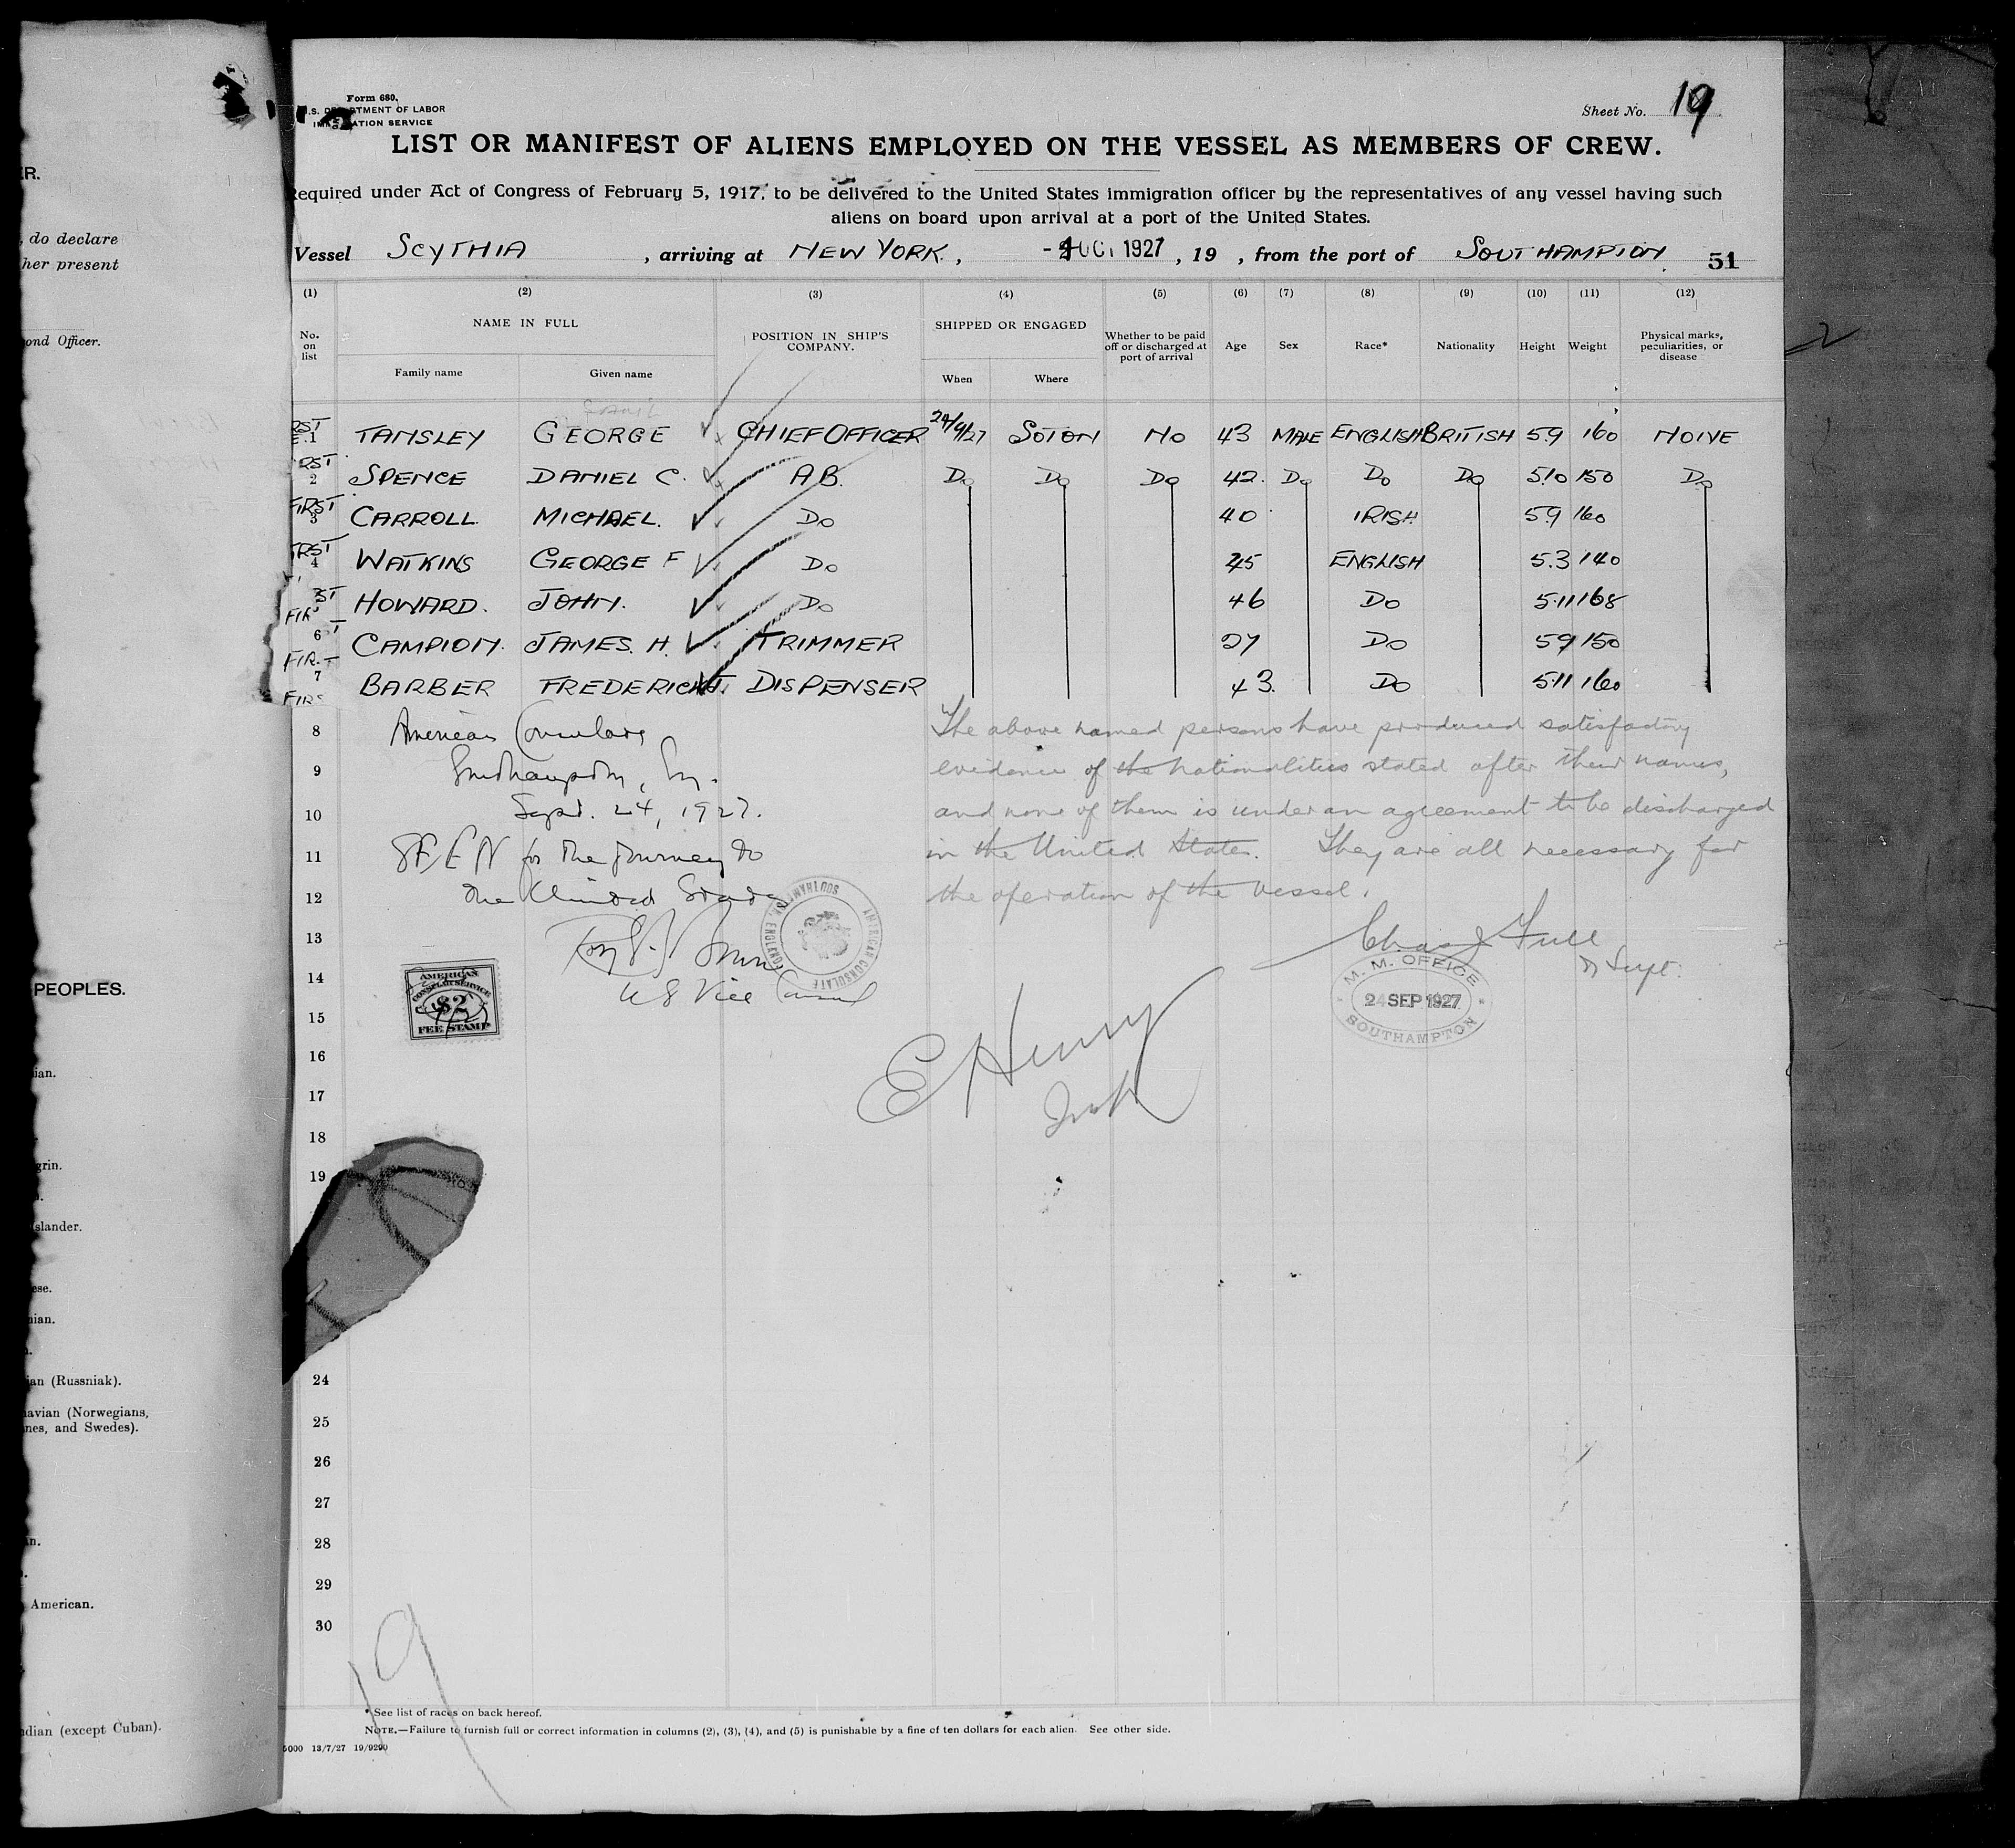 Form 680.
DEPARTMENT OF LABOR
IMMIGRATION SERVICE
Sheet No. 19
LIST OR MANIFEST OF ALIENS EMPLOYED ON THE VESSEL AS MEMBERS OF CREW.
Required under Act of Congress of February 5, 1917, to be delivered to the United States immigration officer by the representatives of any vessel having such
aliens on board upon arrival at a port of the United States.
Vessel SCYTHIA, arriving at NEW YORK, 1927, 19 , from the port of SOUTHAMPTON
51
(1) (2) (3) (4) (5) (6) (7) (8) (9) (10) (11) (12)
No. on list NAME IN FULL POSITION IN SHIP'S COMPANY. SHIPPED OR ENGAGED Whether to be paid off or discharged at port of arrival Age Sex Race* Nationality Height Weight Physical marks, peculiarities, or disease
Family name Given name When Where
1 TANSLEY GEORGE CHIEF OFFICER 24/9/27 SOTON NO 43 MALE ENGLISH BRITISH 5.9 160 NONE
2 SPENCE DANIEL C. A.B. Do Do Do 42. Do Do Do 5.10 150 Do
FIRST 3 CARROLL. MICHAEL. Do 40 IRISH 5.9 160
4 WATKINS GEORGE F Do 45 ENGLISH 5.3 140
HOWARD. JOHN. Do 46 Do 5.11 168
6 CAMPION. JAMES. H. TRIMMER 27 Do 5.9 150
7 BARBER FREDERICK DISPENSER 43. Do 5.11 160
8 American Consulate
9 Southampton, Eng.
10 Sept. 24, 1927.
11 SEEN for the journey to
12 the United States
U S Vice Consul
The above named persons have produced satisfactory
evidence of the nationalities stated after their names,
and none of them is under an agreement to be discharged
in the United States. They are all necessary for
the operation of the vessel.
AMERICAN CONSULATE
SOUTHAMPTON, ENGLAND
Supt.
M. M. OFFICE
24 SEP 1927
SOUTHAMPTON
AMERICAN
CONSULAR SERVICE
$2
FEE STAMP
E Henry
13
14
15
16
17
18
19
24
25
26
27
28
29
30
19
* See list of races on back hereof.
NOTE.—Failure to furnish full or correct information in columns (2), (3), (4), and (5) is punishable by a fine of ten dollars for each alien. See other side.
5000 13/7/27 19/9290
do declare
her present
ond Officer.
PEOPLES.
ian.
grin.
slander.
ese.
nian.
ian (Russniak).
navian (Norwegians,
nes, and Swedes).
American.
ndian (except Cuban).